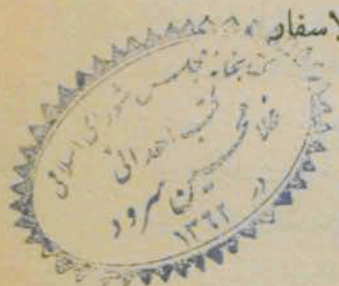 لاسفار
کتابخانه مجلس شورای اسلامی
کتب اهدائی
غلامحسین سرود
در ۱۳۶۲